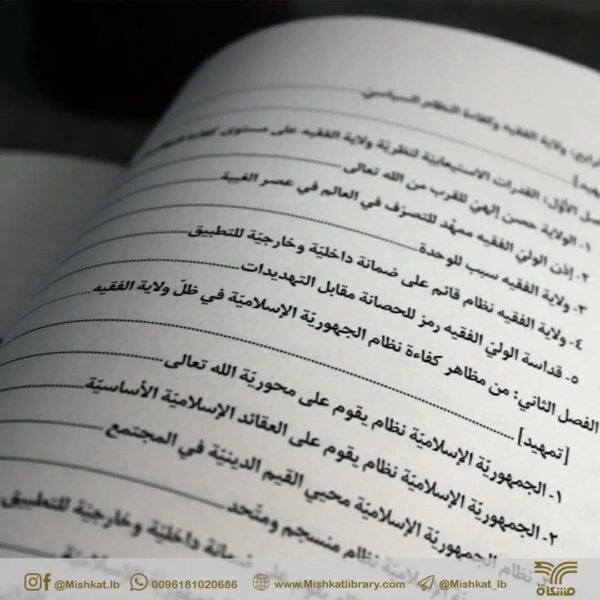 ولاية الفقيه وكفاءة النظام السياسيّ
الأوّل: القدرات الاستيعابيّة لنظريّة ولاية الفقيه على مستوى كفاءة
١. الولاية حصن إلهيّ للقرب من الله تعالى
٢. إذن الوليّ الفقيه ممهّد للتصرّف في العالم في عصر الغيبة
٣. ولاية الفقيه سبب للوحدة
٤. ولاية الفقيه نظام قائم على ضمانة داخليّة وخارجيّة للتطبيق
٥. قداسة الوليّ الفقيه رمز للحصانة مقابل التهديدات
الفصل الثاني: من مظاهر كفاءة نظام الجمهوريّة الإسلاميّة في ظلّ ولاية الفقيه
[تمهيد]
١. الجمهوريّة الإسلاميّة نظام يقوم على محوريّة الله تعالى
٢. الجمهوريّة الإسلاميّة نظام يقوم على العقائد الإسلاميّة الأساسيّة
نظام الجمهوريّة الإسلاميّة محيي القيم الدينيّة في المجتمع
الإسلاميّة نظام منسجم ومتّحد
على ضمانة داخليّة وخارجيّة للتطبيق
@Mishkat.lb 0096181020686 www.Mishkatlibrary.com @Mishkat_lb مشكاة